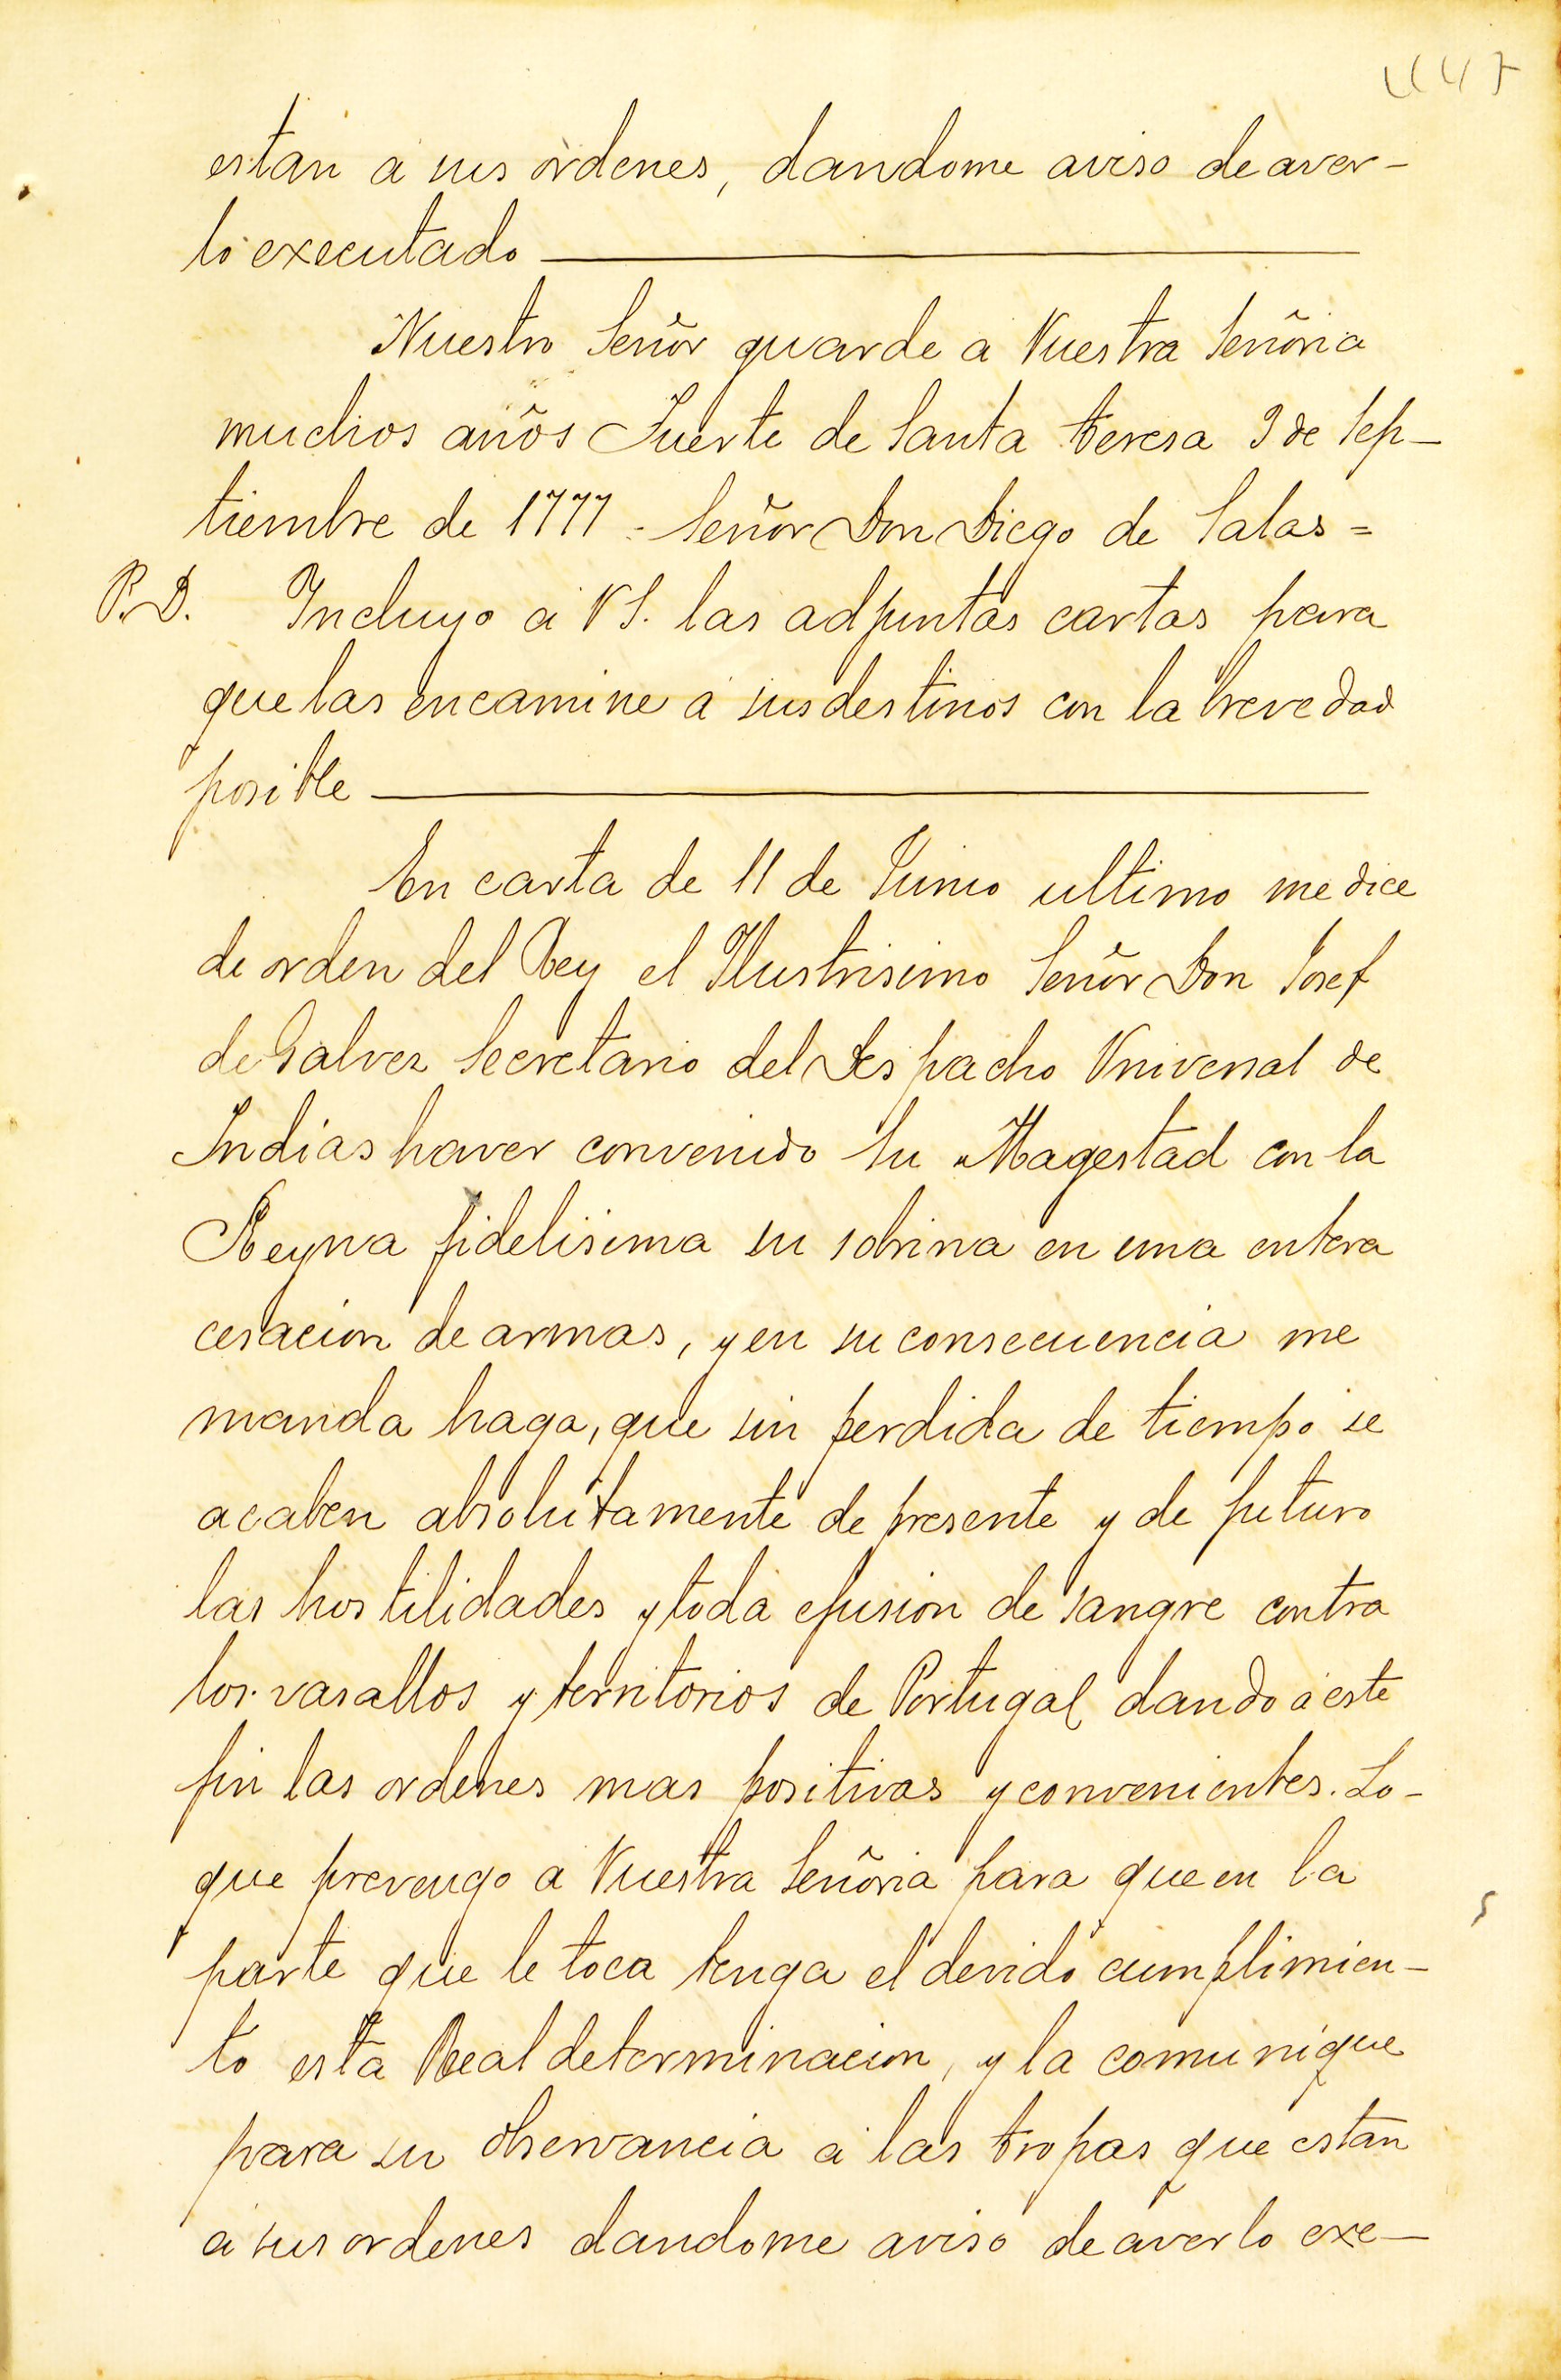 447
estan a sus ordenes, dandome aviso de aver-
lo executado
Nuestro Señor guarde a Vuestra Señoria
muchos años Fuerte de Santa teresa 3 de Sep-
tiembre de 1777 - Señor Don Diego de Salas =
P.D. Incluyo a VS. las adjuntas cartas para
que las encamine a sus destinos con la brevedad
posible
En carta de 11 de Junio ultimo me dice
de orden del Rey el Ilustrisimo Señor Don Josef
de Galvez Secretario del Despacho Vniversal de
Indias haver convenido Su Magestad con la
Reyna fidelisima su sobrina en una entera
cesacion de armas, y en su consecuencia me
manda haga, que sin perdida de tiempo se
acaben absolutamente de presente y de futuro
las hostilidades y toda efusion de sangre contra
los vasallos y territorios de Portugal dando a este
fin las ordenes mas positivas y convenientes. Lo-
que prevengo a Vuestra Señoria para que en la
parte que le toca tenga el devido cumplimien-
to esta Real determinacion, y la comunique
para su observancia a las tropas que estan
a sus ordenes dandome aviso de averlo exe-